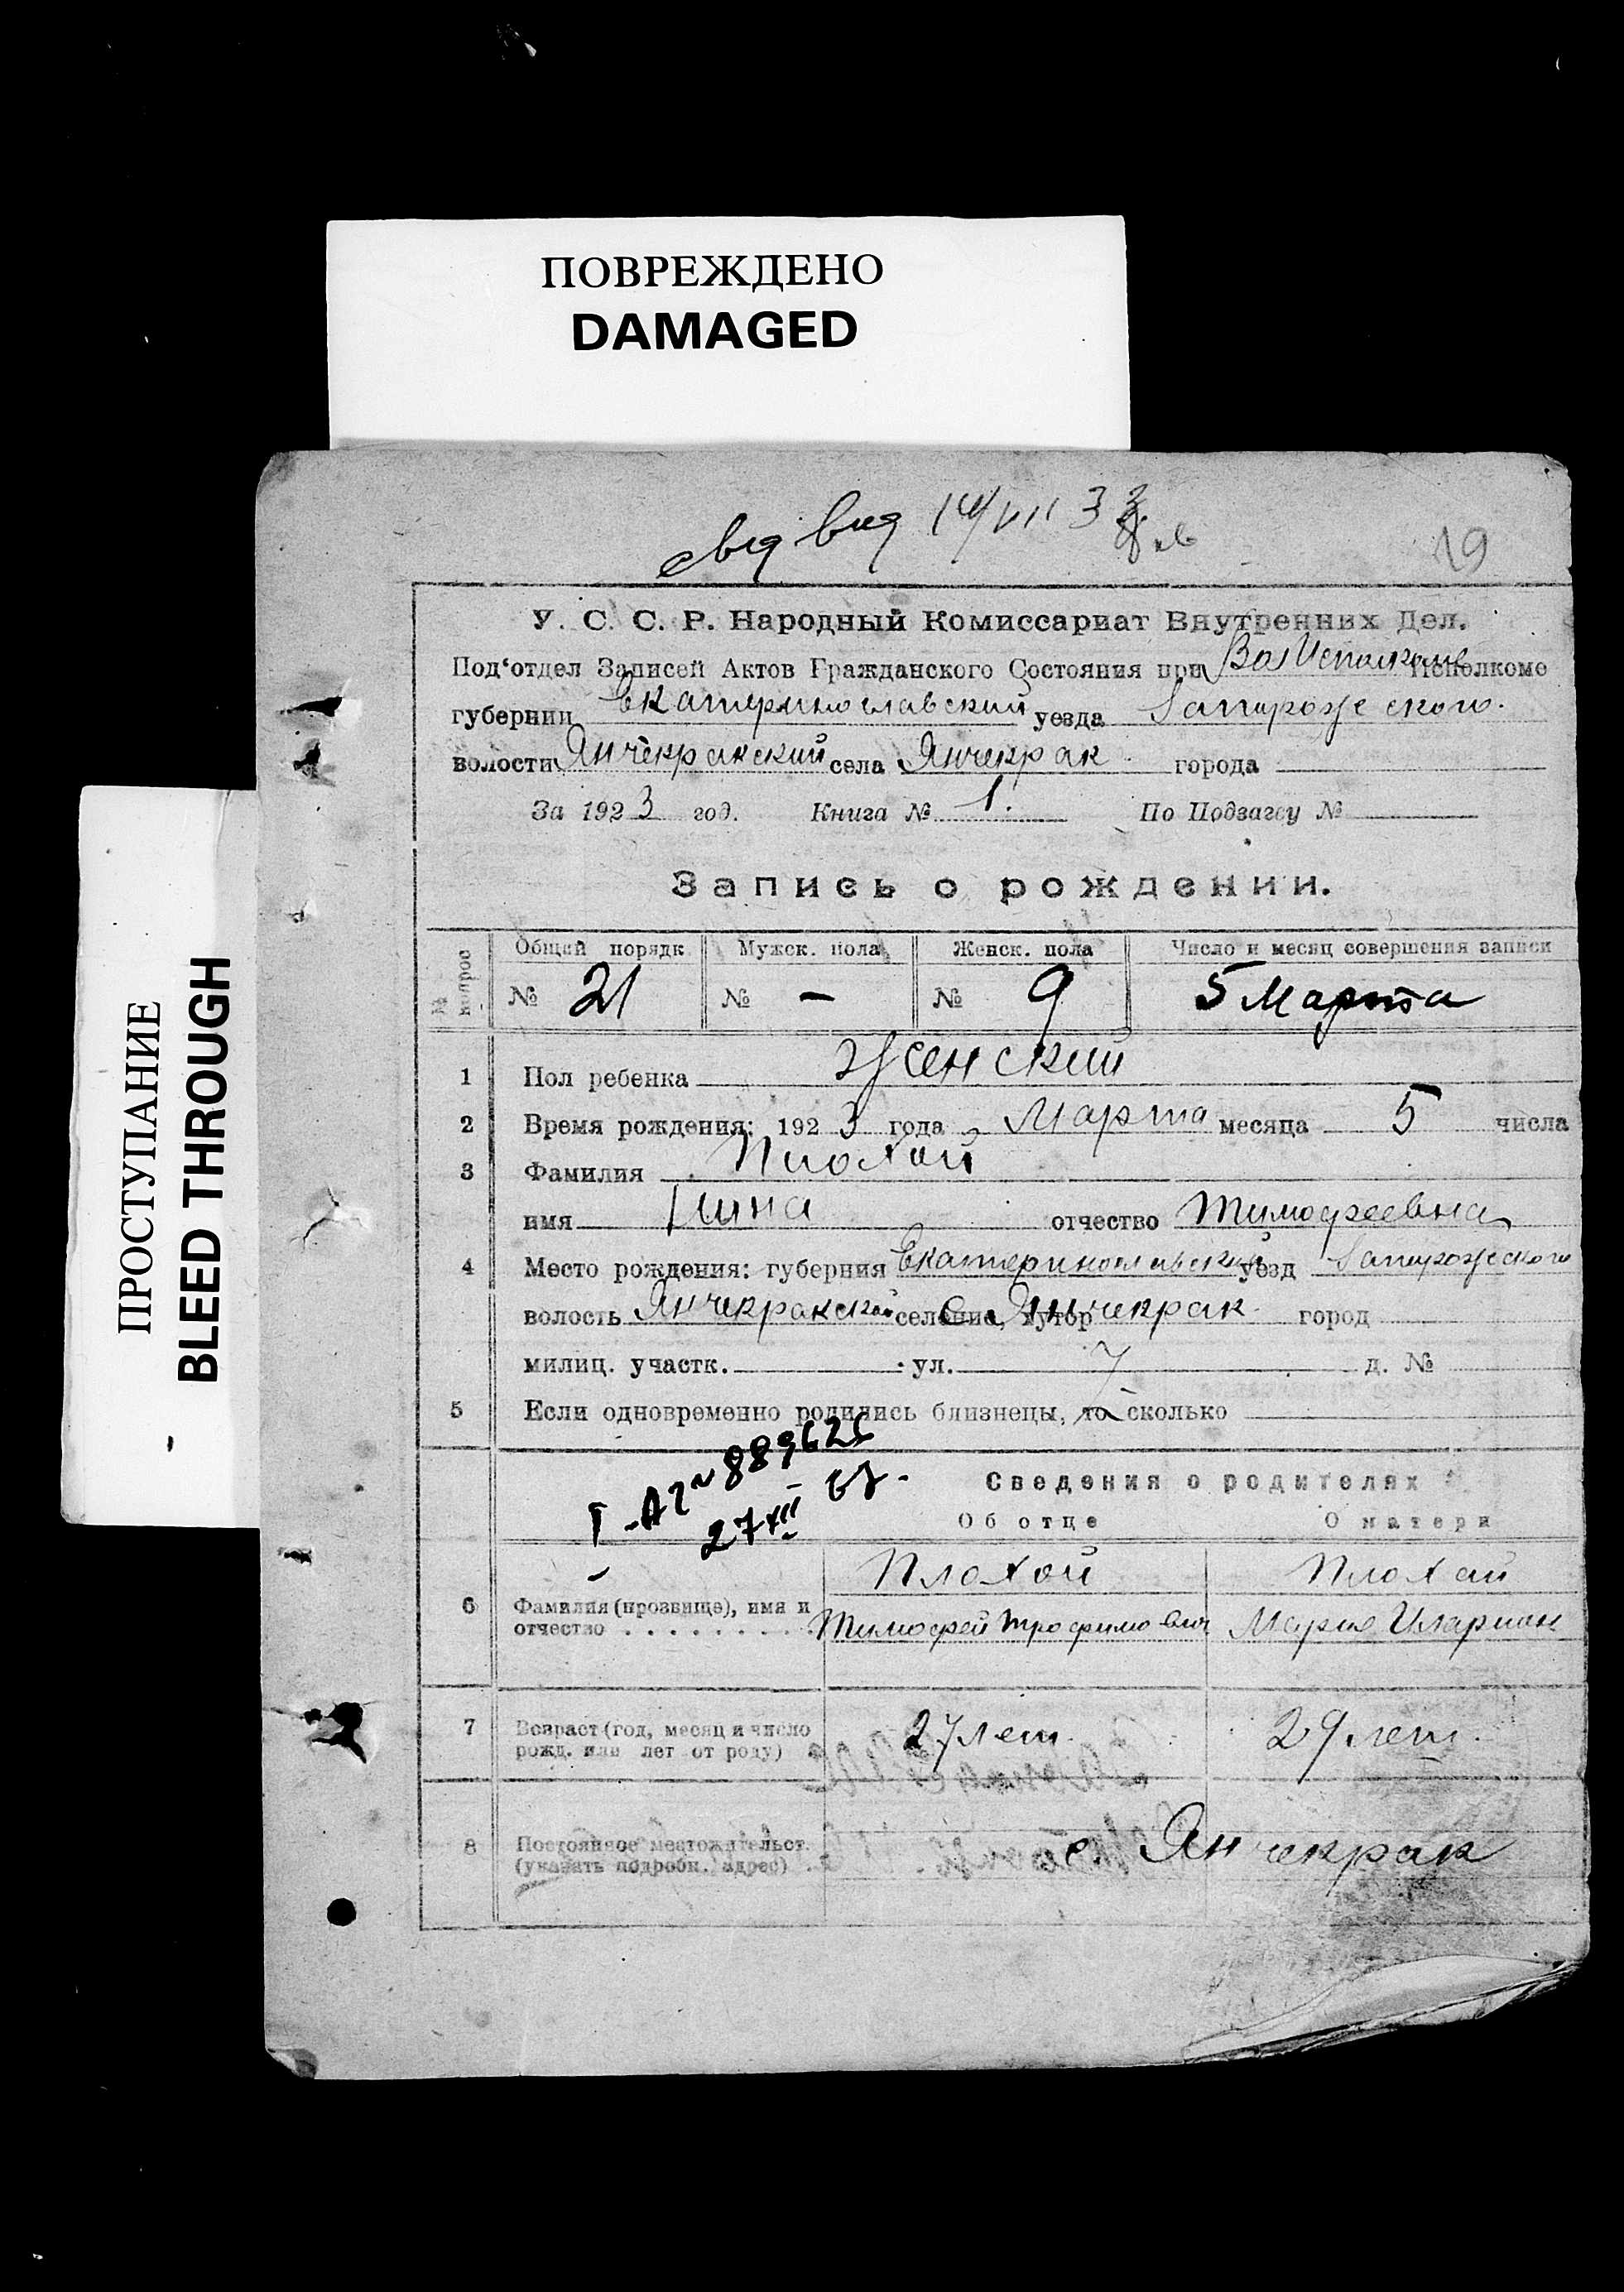 ПОВРЕЖДЕНО
DAMAGED
ПРОСТУПАНИЕ
BLEED THROUGH
19
У. С. С. Р. Народный Комиссариат Внутренних Дел.
Под‘отдел Записей Актов Гражданского Состояния при ВолИсполкоме Исполкоме
губернии Екатеринославский уезда Запорожского.
волости Янчекракский села Янчекрак города
За 1923 год. Книга № 1. По Подзагсу №
Запись о рождении.
№ вопрос Общей порядк Мужск. пола Женск. пола Число и месяц совершения записи
№ 21 № – № 9 5 Марта
1 Пол ребенка Женский
2 Время рождения: 1923 года Марта месяца 5 числа
3 Фамилия Плохой
имя отчество Тимофеевна
4 Место рождения: губерния Екатеринославский уезд Запорожского
волость Янчекракской селение, хутор с. Янчекрак город
милиц. участк. ул. д. №
5 Если одновременно родились близнецы, то сколько
27 XII 67.
Сведения о родителях
Об отце О матери
Плохой Плохай
6 Фамилия (прозвище), имя и
отчество Тимофей Трофимович Мария Иларион
7 Возраст (год, месяц и число
рожд. или лет от роду) 27 лет. 29 лет.
8 Постоянное местожительст.
(указать подробн. адрес) с. Янчекрак